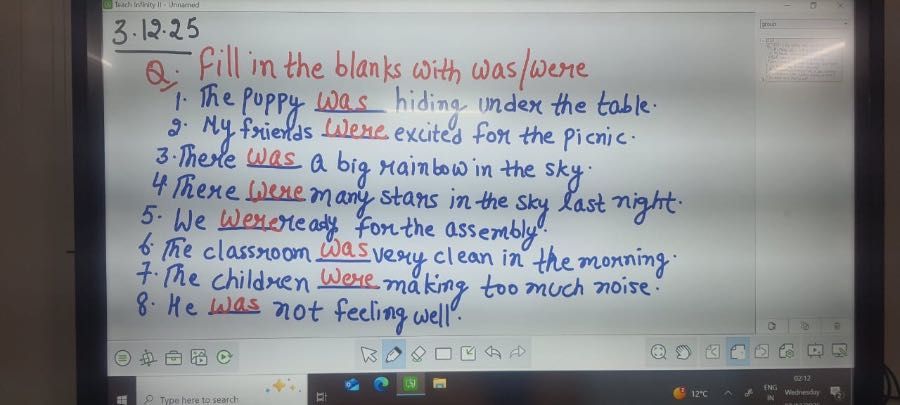 Teach Infinity II - Unnamed
group
3.12.25
Q. Fill in the blanks with was/were
1. The puppy was hiding under the table.
2. My friends were excited for the picnic.
3. There was a big rainbow in the sky.
4. There were many stars in the sky last night.
5. We were ready for the assembly.
6. The classroom was very clean in the morning.
7. The children were making too much noise.
8. He was not feeling well.
Type here to search
12°C
ENG
IN
02:12
Wednesday